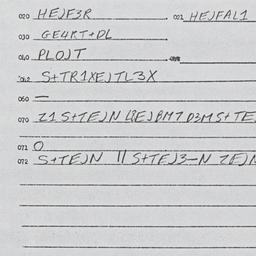 020 HEJF3R 021 HEJFAL1
030 GE4RT+DL
040 PLOJT
042 S+TR1XEJTL3X
050 —
070 Z1 S+TEJN BM7 D3M S+TE
071 O
072 S+TEJN 11 S+TEJ3—N ZEJN